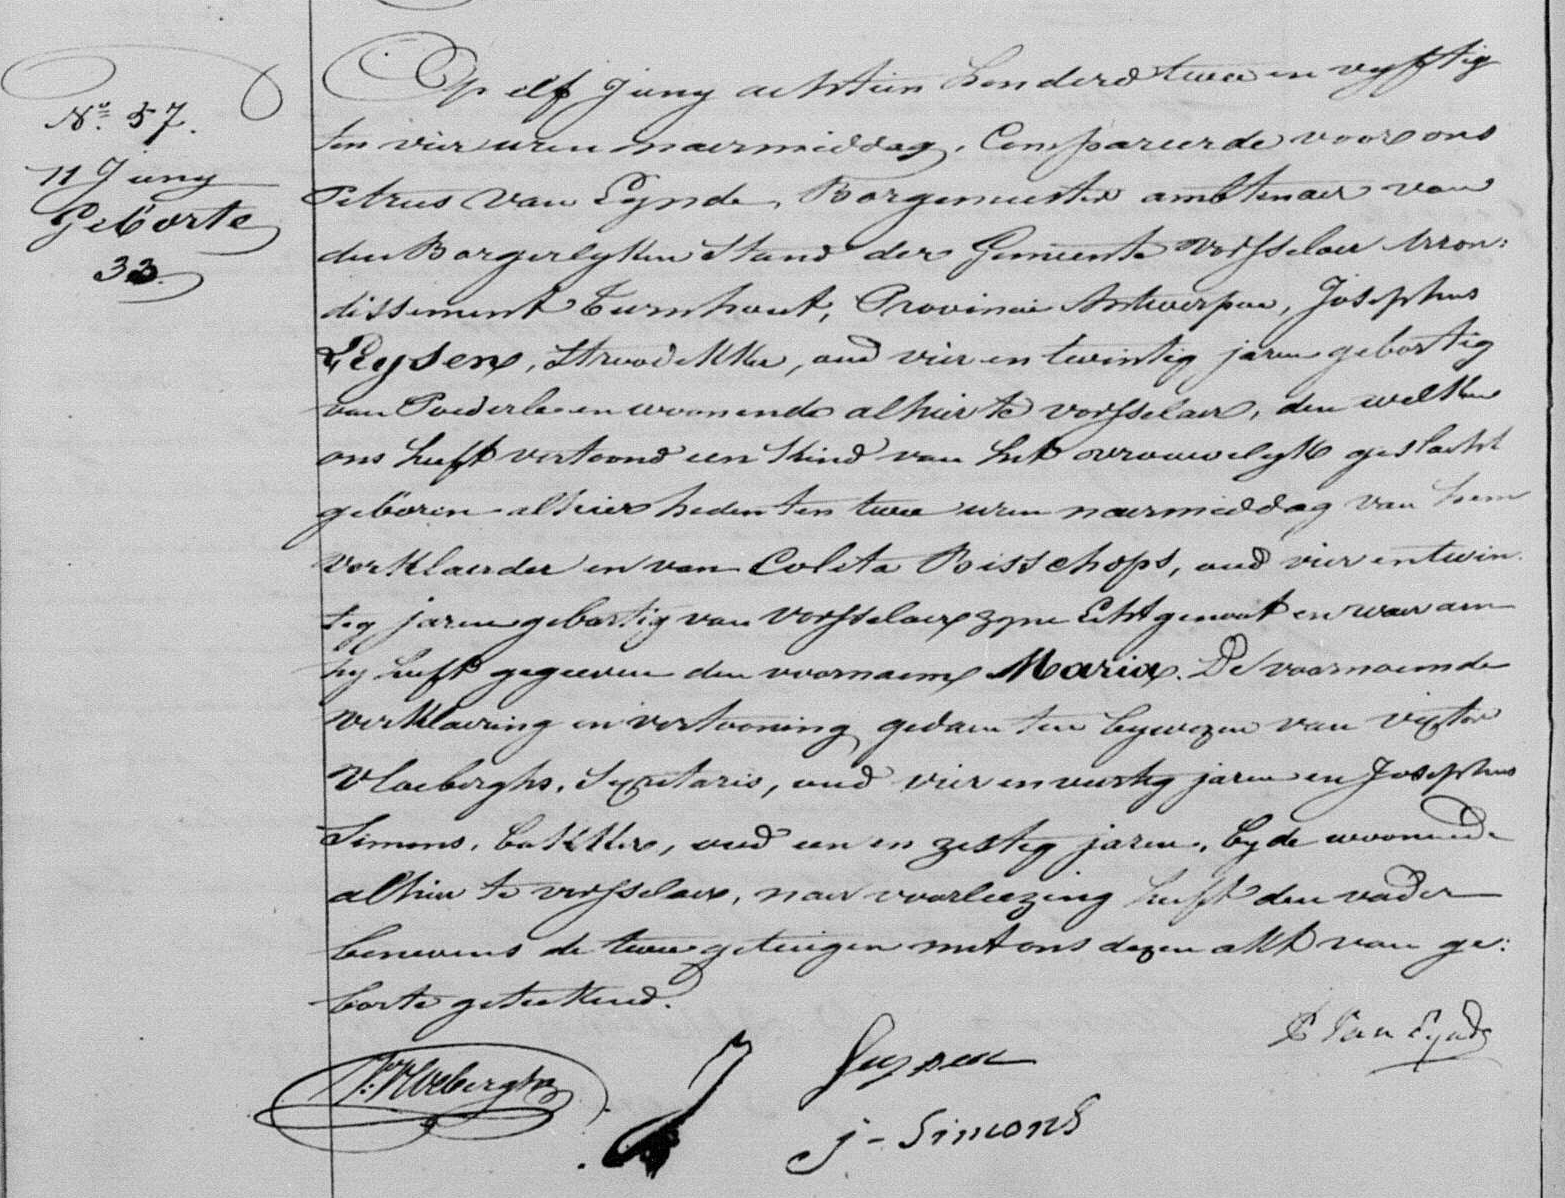 No. 57.
11 Juny
Geborte
33.
Op elf Juny achtien honderd twee en vyftig
ten vier uren naermiddag, Compareerde voor ons
Petrus Van Eynde, Borgemeester ambtenaer van
den Borgerlyken Stand der Gemeente Vorsselaer Arron:
dissement Turnhout, Provincie Antwerpen, Josephus
Leysen, Stroodekker, oud vier en twintig jaren gebortig
van Poederle en woonende alhier te vorsselaer, den welken
ons heeft vertoond een kind van het vrouwelyk geslacht
geboren alhier heden ten twee uren naermiddag van hem
Verklaerder en van Coleta Bisschops, oud vier en twin
tig jaren gebortig van Vorsselaer zyne Echtgenoot en waer aen
hy heeft gegeeven den voornaem Maria. De voornoemde
Verklaering en vertooning gedaen ten bywezen van Victor
Vlaeberghs, Secretaris, oud vier en veertig jaren en Josephus
Simons, bakker, oud een en zestig jaren, byde woonende
alhier te vorsselaer, naer voorleezing heeft den vader
benevens de twee getuigen met ons dezen akt van ge:
borte geteekend.
P Van Eynde
V. Vlaeberghs
Leysen
j - Simons